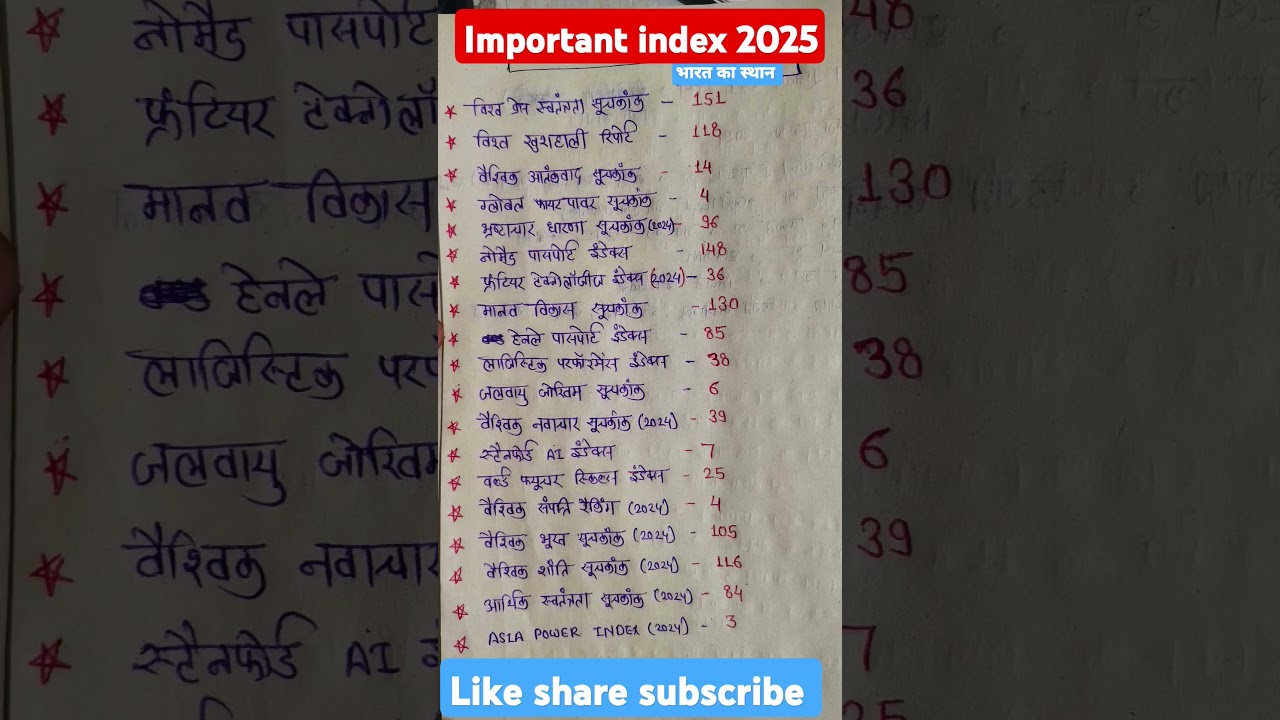 Important index 2025
भारत का स्थान
विश्व प्रेस स्वतंत्रता सूचकांक - 151
विश्व खुशहाली रिपोर्ट - 118
वैश्विक आतंकवाद सूचकांक - 14
ग्लोबल फायरपावर सूचकांक - 4
भ्रष्टाचार धारणा सूचकांक (2024) - 96
नोमैड पासपोर्ट इंडेक्स - 148
फ्रंटियर टेक्नोलॉजीज इंडेक्स (2024) - 36
मानव विकास सूचकांक - 130
हेनले पासपोर्ट इंडेक्स - 85
लाजिस्टिक परफॉरमेंस इंडेक्स - 38
जलवायु जोखिम सूचकांक - 6
वैश्विक नवाचार सूचकांक (2024) - 39
स्टैनफोर्ड AI इंडेक्स - 7
वर्ल्ड फ्यूचर स्किल्स इंडेक्स - 25
वैश्विक संपत्ति रैंकिंग (2024) - 4
वैश्विक भूख सूचकांक (2024) - 105
वैश्विक शांति सूचकांक (2024) - 116
आर्थिक स्वतंत्रता सूचकांक (2024) - 84
ASIA POWER INDEX (2024) - 3
Like share subscribe
नोमैड पासपोर्ट 48
फ्रंटियर टेक्नोलॉ 36
मानव विकास 130
हेनले पास 85
लाजिस्टिक पर 38
जलवायु जोखिम 6
वैश्विक नवाचार 39
स्टैनफोर्ड AI 7
25